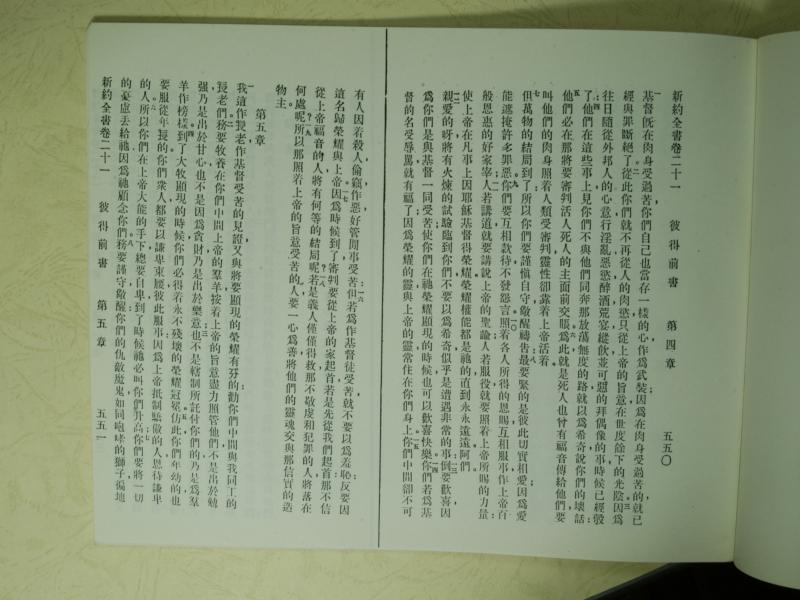 新約全書卷二十一　彼得前書　第四章　五五〇
一基督旣在肉身受過苦你們自己也當存一樣的心作爲武裝因爲在肉身受過苦的就已
經與罪斷絕了從此你們就不再從人的肉慾只從上帝的旨意在世度餘下的光陰因爲
往日隨從外邦人的心意行淫亂惡慾醉酒荒宴縱飲並可惡的拜偶像的事時候已經彀
了他們在這些事上見你們不與他們同奔那放蕩無度的路就以爲希奇說你們的壞話
他們必在那將要審判活人死人的主面前交賬爲此就是死人也曾有福音傳給他們要
叫他們的肉身照着人類受審判靈性卻靠着上帝活着
七但萬物的結局到了所以你們要謹愼自守儆醒禱告最要緊的是彼此切實相愛因爲愛
能遮掩許多罪惡你們要互相款待不發怨言照着各人所得的恩賜互相服事作上帝百
般恩惠的好家宰人若講道就要講說上帝的聖論人若服役就要照着上帝所賜的力量
使上帝在凡事上因耶穌基督得榮耀榮耀權能都是祂的直到永永遠遠阿們
親愛的呀將有火煉的試驗臨到你們不要以爲希奇似乎是遭遇非常的事倒要歡喜因
爲你們是與基督一同受苦使你們在祂榮耀顯現的時候也可以歡喜快樂你們若爲基
督的名受辱罵就有福了因爲榮耀的靈與上帝的靈常住在你們身上你們中間卻不可
有人因着殺人偸竊作惡好管閒事受苦但若爲作基督徒受苦就不要以爲羞恥反要因
這名歸榮耀與上帝因爲時候到了審判要從上帝的家起首若是先從我們起首那不信
從上帝福音的人將有何等的結局呢若是義人僅僅得救那不敬虔和犯罪的人將落在
何處呢所以那照着上帝的旨意受苦的人要一心爲善將他們的靈魂交與那信實的造
物主
第五章
一我這作長老作基督受苦的見證又與將要顯現的榮耀有分的勸你們中間與我同工的
長老們務要牧養在你們中間上帝的羣羊按着上帝的旨意盡力照管他們不是出於勉
强乃是出於甘心也不是因爲貪財乃是出於樂意也不是轄制所託付你們的乃是爲羣
羊作榜樣到了大牧顯現的時候你們必得着永不殘壞的榮耀冠冕你們年幼的也
要服從年長的你們衆人都要以謙卑束腰彼此服事因爲上帝抵制驕傲的人恩待謙卑
的人所以你們在上帝大能的手下總要自卑到了時候祂必叫你們升高你們要將一切
的憂慮丟給祂因爲祂顧念你們務要謹守儆醒你們的仇敵魔鬼如同咆哮的獅子徧地
新約全書卷二十一　彼得前書　第五章　五五一